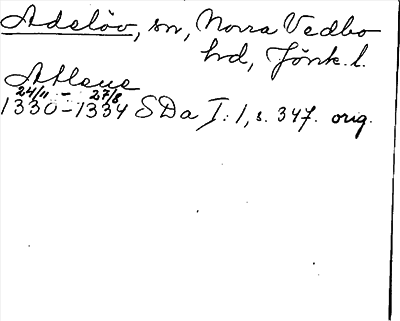 Adelöv, sn, Norra Vedbo
hd, Jönk. l.
Atleue
24/11 – 27/8
1330–1334 SDa I: 1, s. 347. orig.